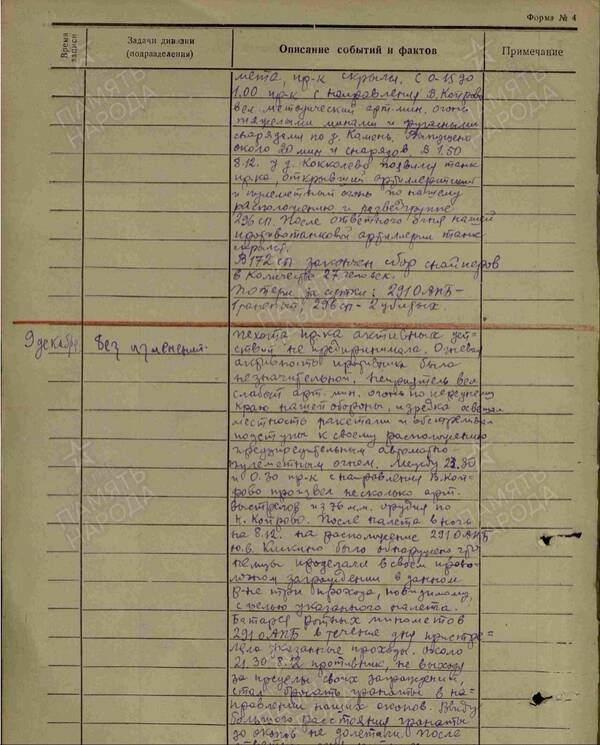 Форма № 4
Время записи
Задачи дивизии (подразделения)
Описание событий и фактов
Примечание
мета, пр-к скрылся. С 0-15 до
1.00 пр-к с направления В. Котрово
вел методический арт. мин. огонь
тяжелыми минами и фугасными
снарядами по д. Камень. Выпущено
около 20 мин и снарядов. В 1.50
8.12. у д. Кокколево появился танк
пр-ка, открывший артиллерийский
и пулеметный огонь по нашему
расположению и разведгруппе
296 сп. После ответного огня нашей
противотанковой артиллерии танк
скрылся.
В 172 сп закончен сбор снайперов
в количестве 27 человек.
Потери за сутки: 291 ОАПБ –
1 раненый; 296 сп – 2 убитых.
9 декабря
Без изменений.
Пехота пр-ка активных дей-
ствий не предпринимала. Огневая
активность противника была
незначительной. Неприятель вел
слабый арт. мин. огонь по переднему
краю нашей обороны, изредка освещал
местность ракетами и обстреливал
подступы к своему расположению
предупредительным автоматно-
пулеметным огнем. Между 23.30
и 0.30 пр-к с направления В. Кот-
рово произвел несколько арт.
выстрелов из 76 м.м. орудия по
Н. Котрово. После налета в ночь
на 8.12. на расположение 291 ОАПБ
ю.в. было обнаружено
немцы проделали в своем прово-
лочном заграждении в данном
р-не три прохода, повидимому,
с целью указанного налета.
Батарея ротных минометов
291 ОАПБ в течение дня пристре-
ляла указанные проходы. Около
21.30 8.12 противник, не выходя
за пределы своих заграждений,
стал бросать гранаты в на-
правлении наших окопов. Ввиду
большого расстояния гранаты
до окопов не долетали. После